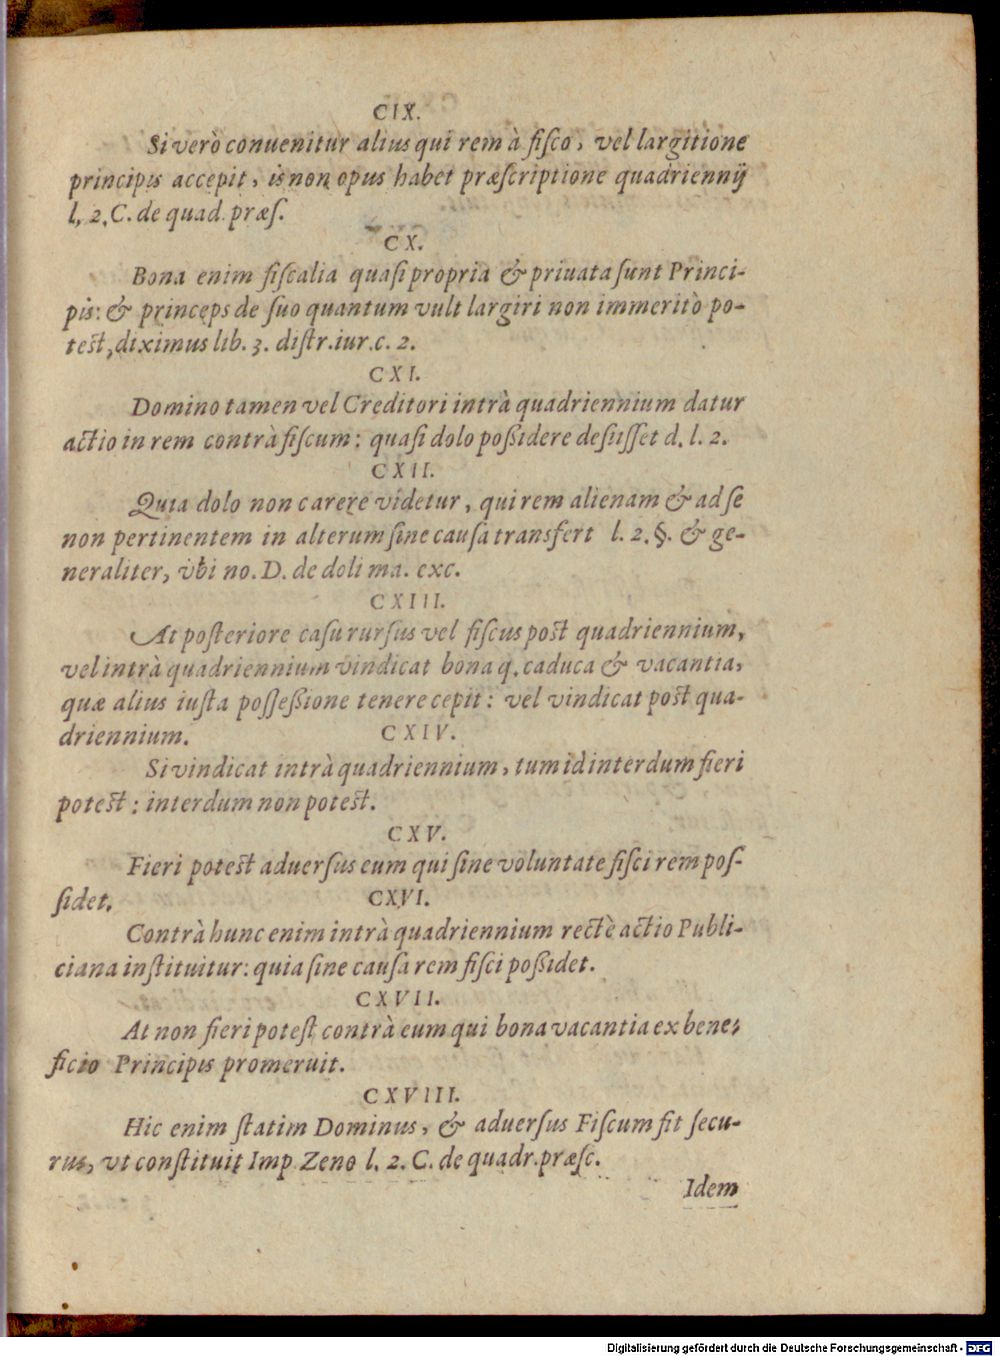 CIX.
Si verò conuenitur alius qui rem à fisco, vel largitione
principis accepit, is non opus habet præscriptione quadriennij
l. 2. C. de quad. præs.
CX.
Bona enim fiscalia quasi propria & priuata sunt Princi-
pis: & princeps de suo quantum vult largiri non immeritò po-
test, diximus lib. 3. distr. iur. c. 2.
CXI.
Domino tamen vel Creditori intrà quadriennium datur
actio in rem contrà fiscum: quasi dolo poßidere desijsset d. l. 2.
CXII.
Quia dolo non carere videtur, qui rem alienam & ad se
non pertinentem in alterum sine causa transfert l. 2. §. & ge-
neraliter, vbi no. D. de doli ma. exc.
CXIII.
At posteriore casu rursus vel fiscus post quadriennium,
vel intrà quadriennium vindicat bona q. caduca & vacantia,
quæ alius iusta posseßione tenere cepit: vel vindicat post qua-
driennium.
CXIV.
Si vindicat intrà quadriennium, tum id interdum fieri
potest: interdum non potest.
CXV.
Fieri potest aduersus eum qui sine voluntate fisci rem pos-
sidet.
CXVI.
Contrà hunc enim intrà quadriennium rectè actio Publi-
ciana instituitur: quia sine causa rem fisci poßidet.
CXVII.
At non fieri potest contrà eum qui bona vacantia ex bene-
ficio Principis promeruit.
CXVIII.
Hic enim statim Dominus, & aduersus Fiscum fit secu-
rus, vt constituit Imp. Zeno l. 2. C. de quadr. præsc.
Idem
Digitalisierung gefördert durch die Deutsche Forschungsgemeinschaft - DFG